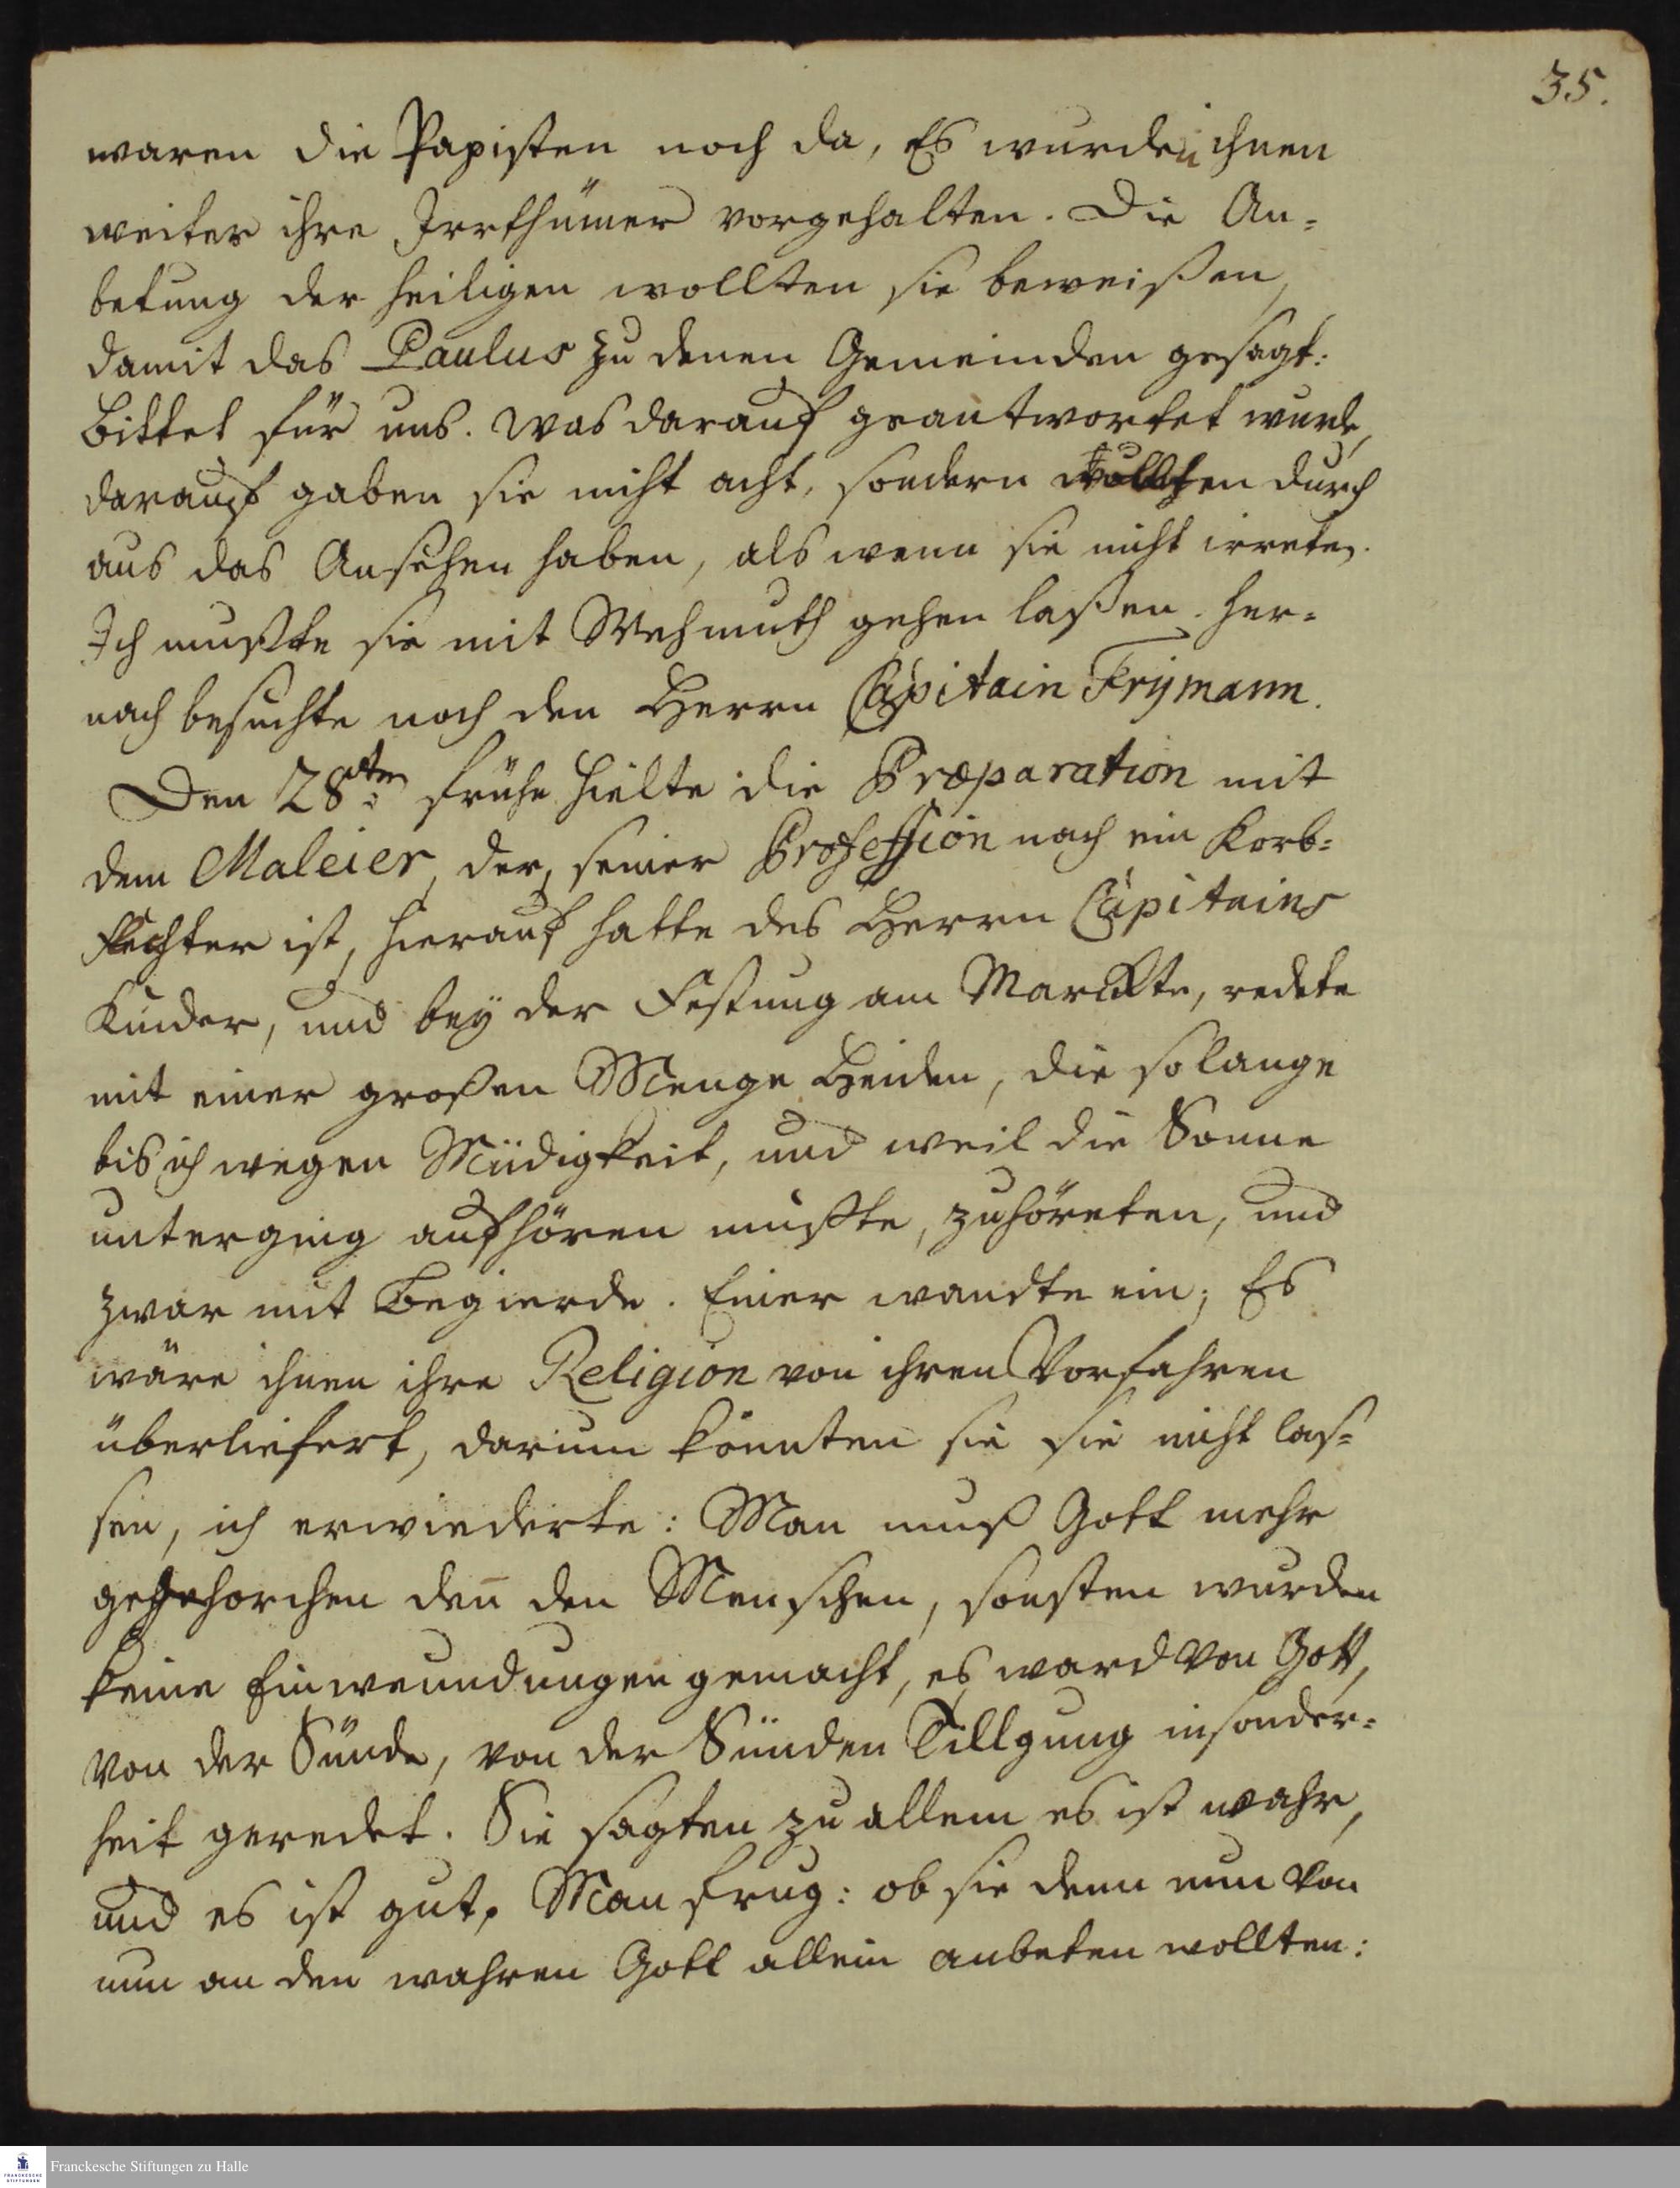 35.
waren die Papisten noch da, Es wurden ihnen
weiter ihre Irrthümer vorgehalten. Die An-
betung der heiligen wollten sie beweißen,
damit das Paulus zu denen Gemeinden gesagt:
bittet für uns. was darauf geantwortet wurde,
darauf gaben sie nicht acht, sondern wollten durch
aus das Ansehen haben, als wenn sie nicht irreten.
Ich mußte sie mit Wehmuth gehen laßen. her-
nach besuchte noch den Herrn Capitain Frijmann.
Den 28ten frühe hielte die Præparation mit
dem Maleier, der, seiner Profession nach ein Korb-
flechter ist, hierauf hatte des Herrn Capitains
Kinder, und bey der Festung am Marckte, redete
mit einer großen Menge Heiden, die so lange
bis ich wegen Müdigkeit, und weil die Sonne
unterging aufhören mußte, zuhöreten, und
zwar mit Begierde. Einer wandte ein; Es
wäre ihnen ihre Religion von ihren Vorfahren
überliefert, darum könnten sie sie nicht las-
sen, ich erwiederte: Man muß Gott mehr
gehorchen den̅ den Menschen, sonsten wurden
keine Einwenndungen gemacht, es ward von Gott,
von der Sünde, von der Sünden Tillgung insonder-
heit geredet. Sie sagten zu allem es ist wahr,
und es ist gut. Man frug: ob sie denn nun von
nun an den wahren Gott allein anbeten wollten:
Franckesche Stiftungen zu Halle